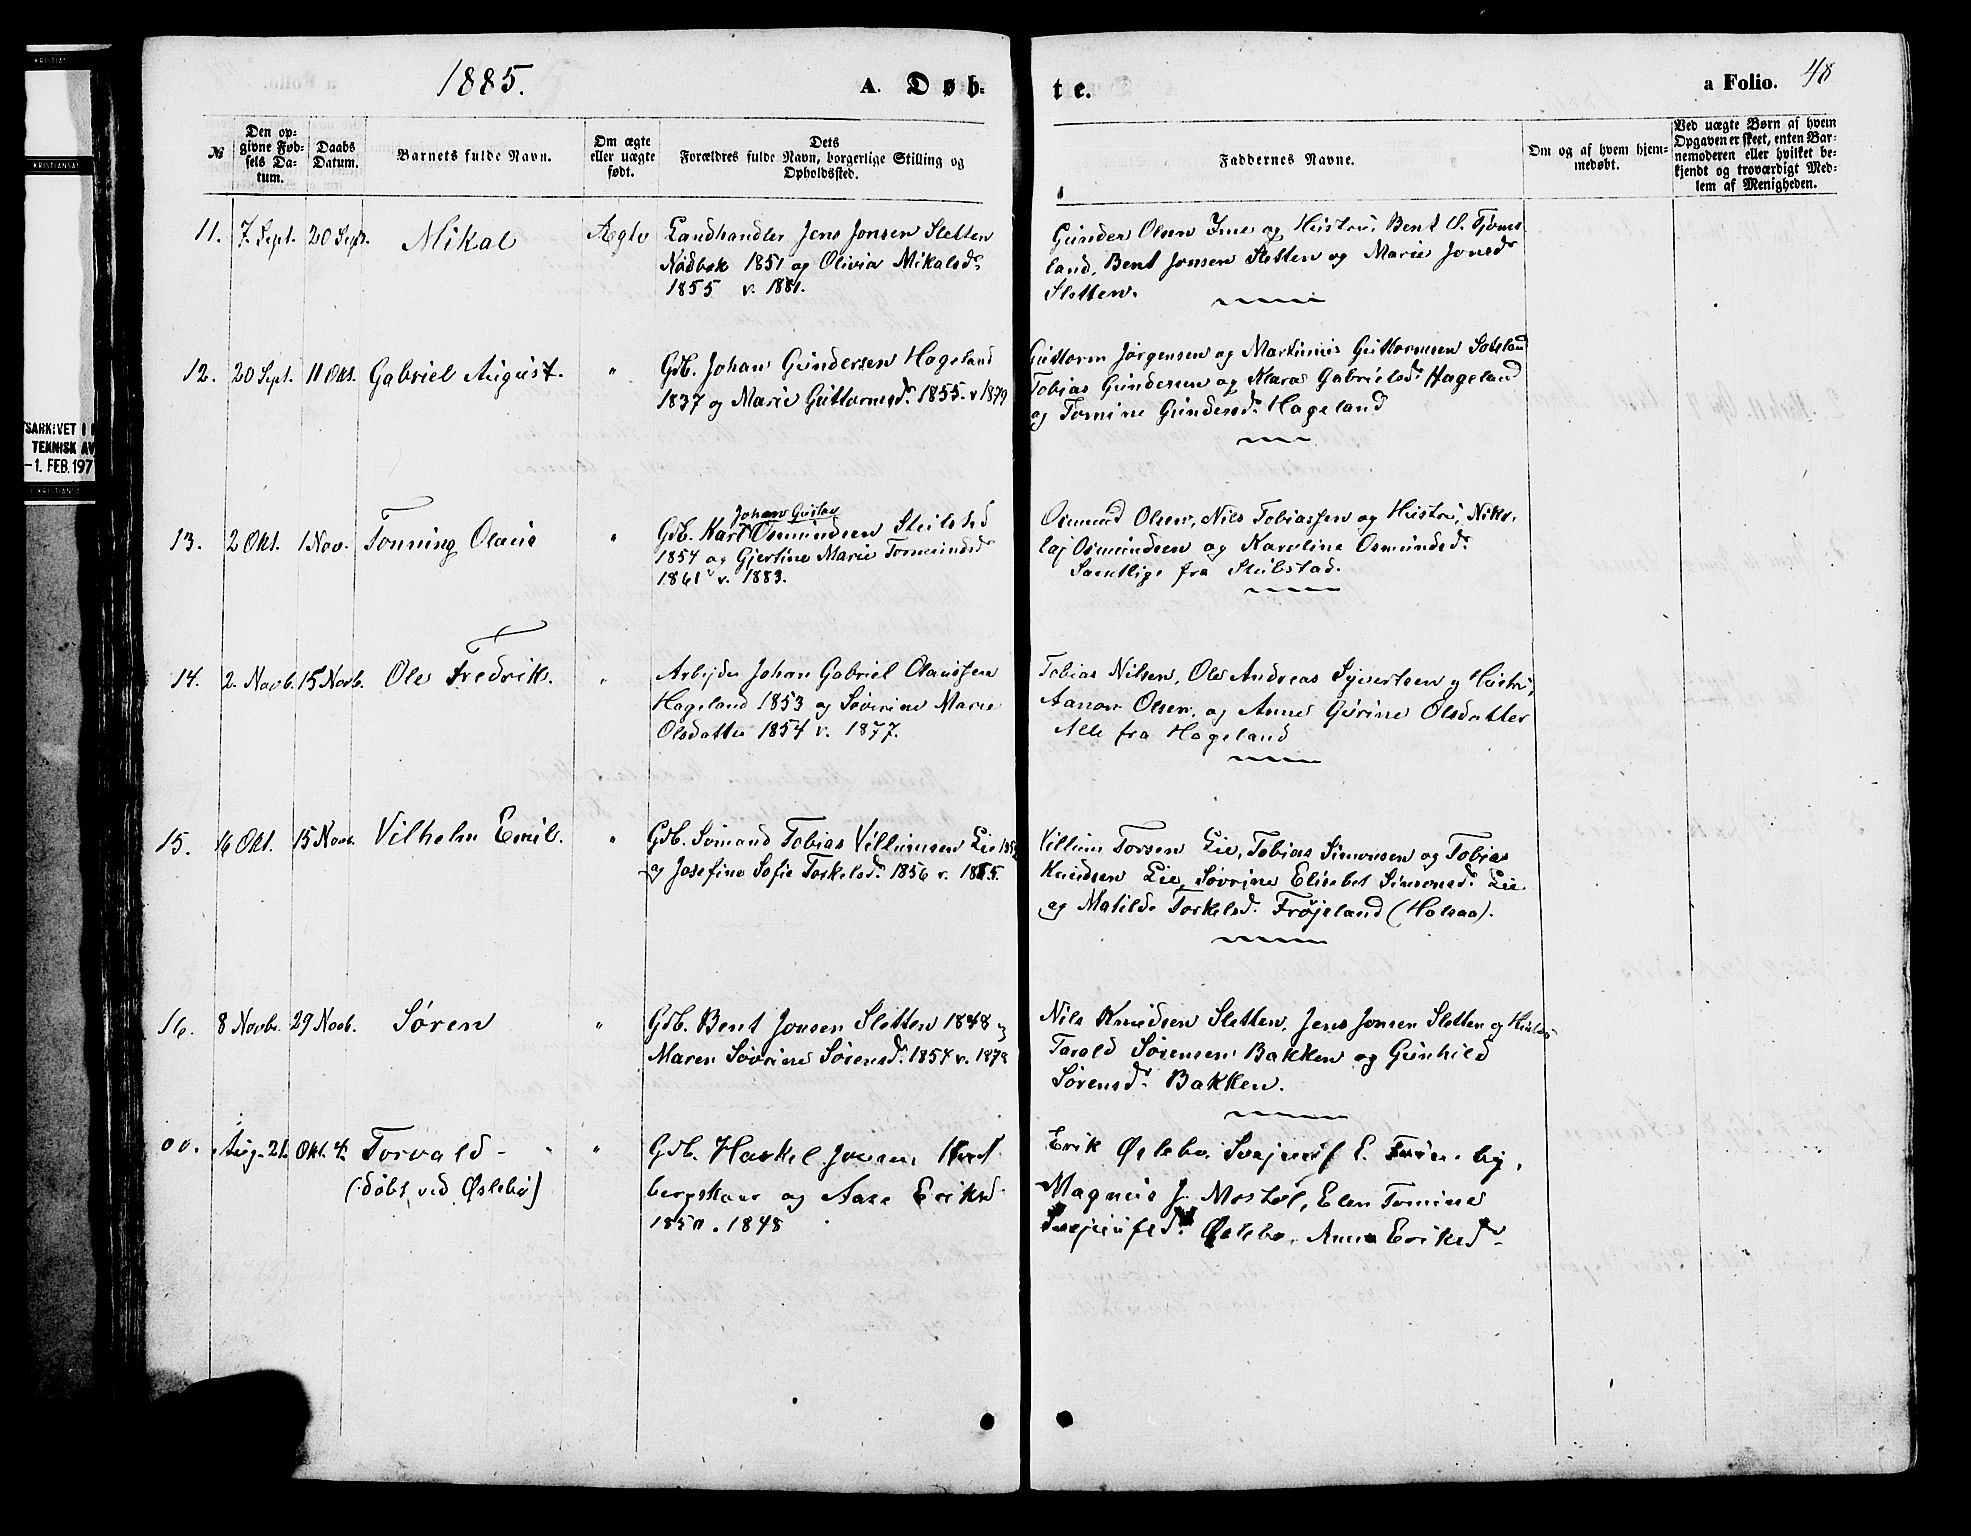 1885.
A. Døb-
te.
a Folio.
48
№
Den op-
givne Fød-
sels Da-
tum.
Daabs
Datum.
Barnets fulde Navn.
Om ægte
eller uægte
født.
Dets
Forældres fulde Navn, borgerlige Stilling og
Opholdssted.
Faddernes Navne.
Om og af hvem hjem-
medøbt.
Ved uægte Børn af hvem
Opgaven er skeet, enten Bar-
nemoderen eller hvilket be-
kjendt og troværdigt Med-
lem af Menigheden.
11. 7. Sept. 20 Sept. Mikal Ægte
Landhandler Jens Jonsen Sletten
Nødbæk 1851 og Olivia Mikalsdr
1855 v. 1881.
Gunder Olsen Ime og Hustru, Bent O. Tjoms
land, Bent Jonsen Sletten og Marie Jonsdr
Sletten.
12. 20 Sept. 11 Okt. Gabriel August. "
Gdb. Johan Gundersen Hageland
1837 og Marie Guttormsdr. 1855. v 1879
Guttorm Jørgensen og Martinius Guttormsen
Tobias Gundersen og Klara Gabrielsdr Hageland
og Tomine Gundersdr. Hageland
13. 2 Okt. 1 Nov. Tonning Olaus "
Johan Gustav
Gdb. Karl Osmundsen Stubstad
1854 og Gjertine Marie Tormundsdr
1861 v. 1883.
Osmund Olsen, Nils Tobiassen og Hustru, Niko-
laj Osmundsen og Karoline Osmundsdr.
Samtlige fra Stubstad.
14. 2. Novb. 15 Novb. Ole Fredrik. "
Arbejder Johan Gabriel Olaussen
Hageland 1853 og Søverine Marie
Olsdatter 1854 v. 1877.
Tobias Nilsen, Ole Andreas Syvertsen og Hustru,
Aanon Olsen, og Anne Gurine Olsdatter
Alle fra Hageland
15. 16 Okt. 15 Novb. Vilhelm Emil. "
Gdb. Simand Tobias Villumsen Lie
og Josefine Sofie Torkelsdr. 1856 v. 1885.
Villum Torsen Lie, Tobias Simonsen og Tobias
Knudsen Lie, Søvrine Elisabet Simonsdr. Lie
og Matilde Torkelsdr. Frøjsland (Holsaa).
16. 8 Novbr. 29 Novb. Søren "
Gdb. Bent Jonsen Sletten 1848 og
Maren Søvrine Sørensdr. 1854 v. 1878
Nils Knudsen Sletten, Jens Jonsen Sletten og Hustru
Tarald Sørensen Bakken og Gunhild
Sørensdr. Bakken.
00. Aug. 21. Okt. 4. Torvald - " "
(døbt ved Øslebø)
Gdb. Haskel
bergskaar og Aase Eriksd
1850. 1848
Erik Øslebø,
Magnus J. Mostøl, Elen Tomine
Øslebø, Anna Eriksdr.
KRISTIANSA
SARKIVET I
TEKNISK AV
-1. FEB. 197
KRISTIANSA